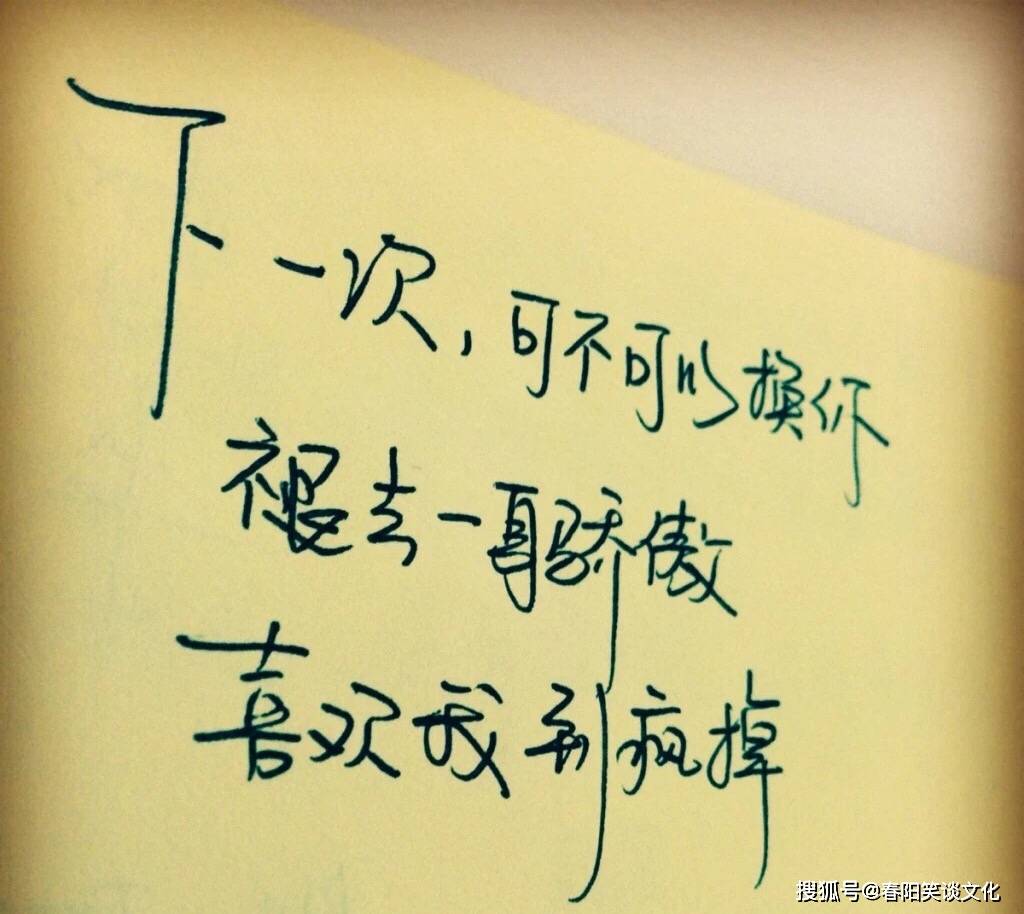 下一次,可不可以换你
褪去一身骄傲
喜欢我到疯掉
搜狐号@春阳笑谈文化